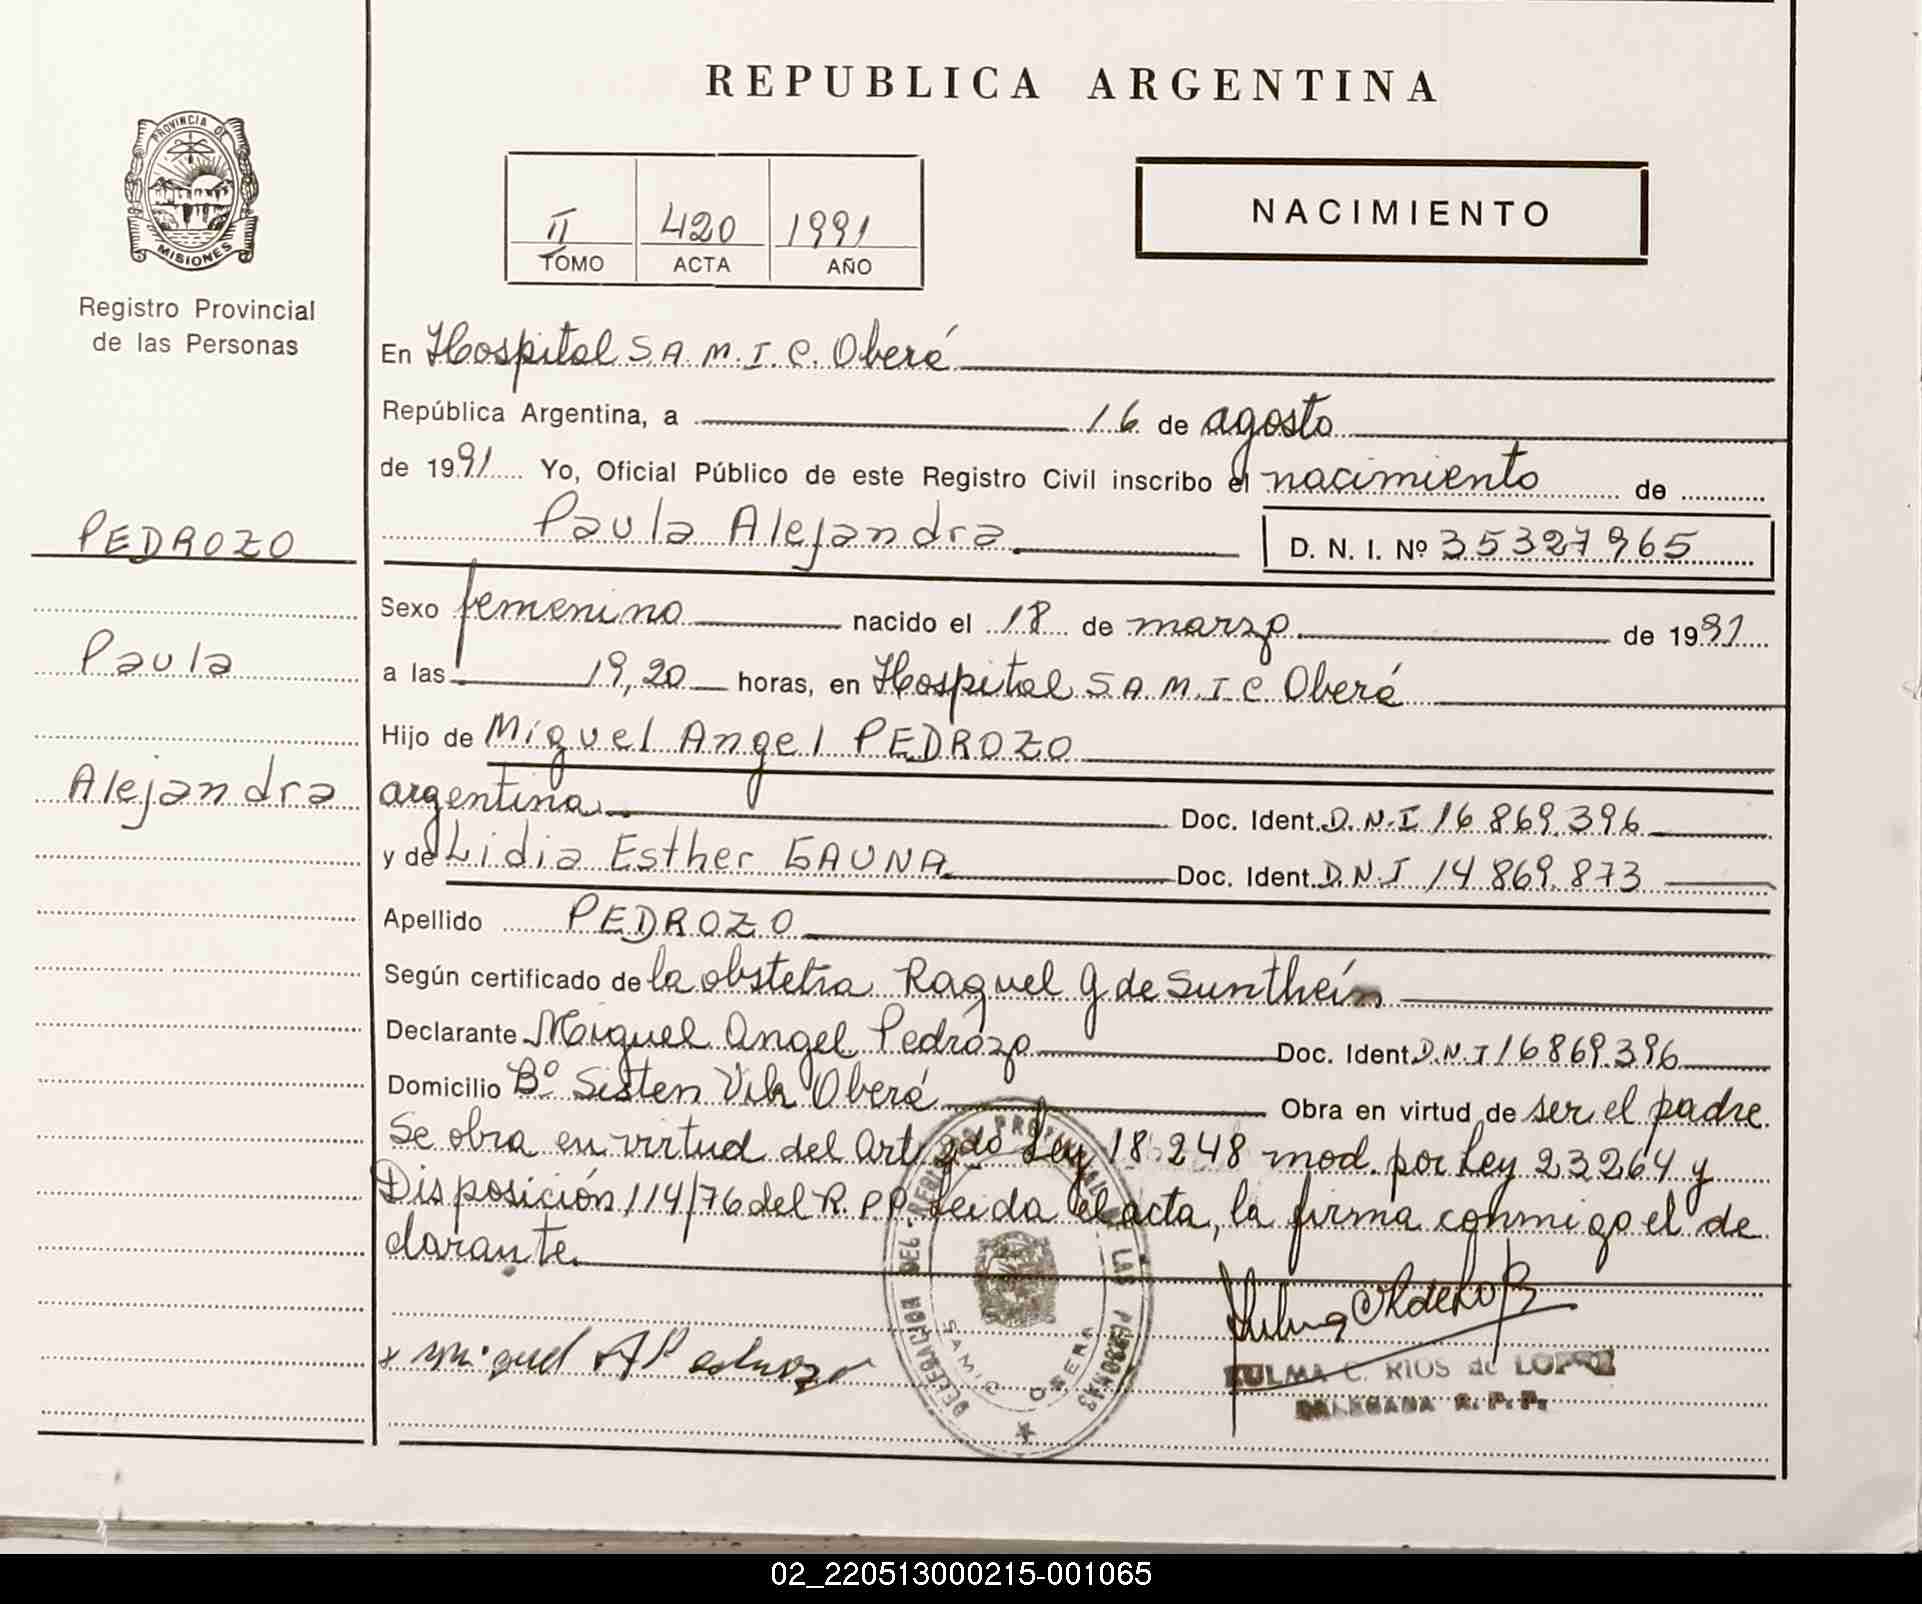 REPUBLICA ARGENTINA
PROVINCIA DE
MISIONES
Registro Provincial
de las Personas
II 420 1991
TOMO ACTA AÑO
NACIMIENTO
PEDROZO
Paula
Alejandra
En Hospital S.A.M.I.C. Oberá
República Argentina, a 16 de agosto
de 1991 Yo, Oficial Público de este Registro Civil inscribo el nacimiento de
Paula Alejandra D. N. I. Nº 35327965
Sexo femenino nacido el 18 de marzo de 1991
a las 19,20 horas, en Hospital S A M I C Oberá
Hijo de Miguel Angel PEDROZO
argentina Doc. Ident. D.N.I 16 869.396
y de Lidia Esther GAUNA Doc. Ident. D.N.I 14 869.873
Apellido PEDROZO
Según certificado de la obstetra Raquel G de
Declarante Miguel Angel Pedrozo Doc. Ident. D.N.I 16869.396
Domicilio Bº Sisten Oberá Obra en virtud de ser el padre
Se obra en virtud del Art 2do Ley 18.248 mod. por Ley 23264 y
Disposición 114/76 del R.P.P. Leida el acta, la firma conmigo el de
clarante.
x Miguel A Pedrozo
DELEGACION DEL REGISTRO PROVINCIAL DE LAS PERSONAS
SAMIC OBERA
ZULMA C. RIOS de LOPEZ
DELEGADA R. P. P.
02_220513000215-001065